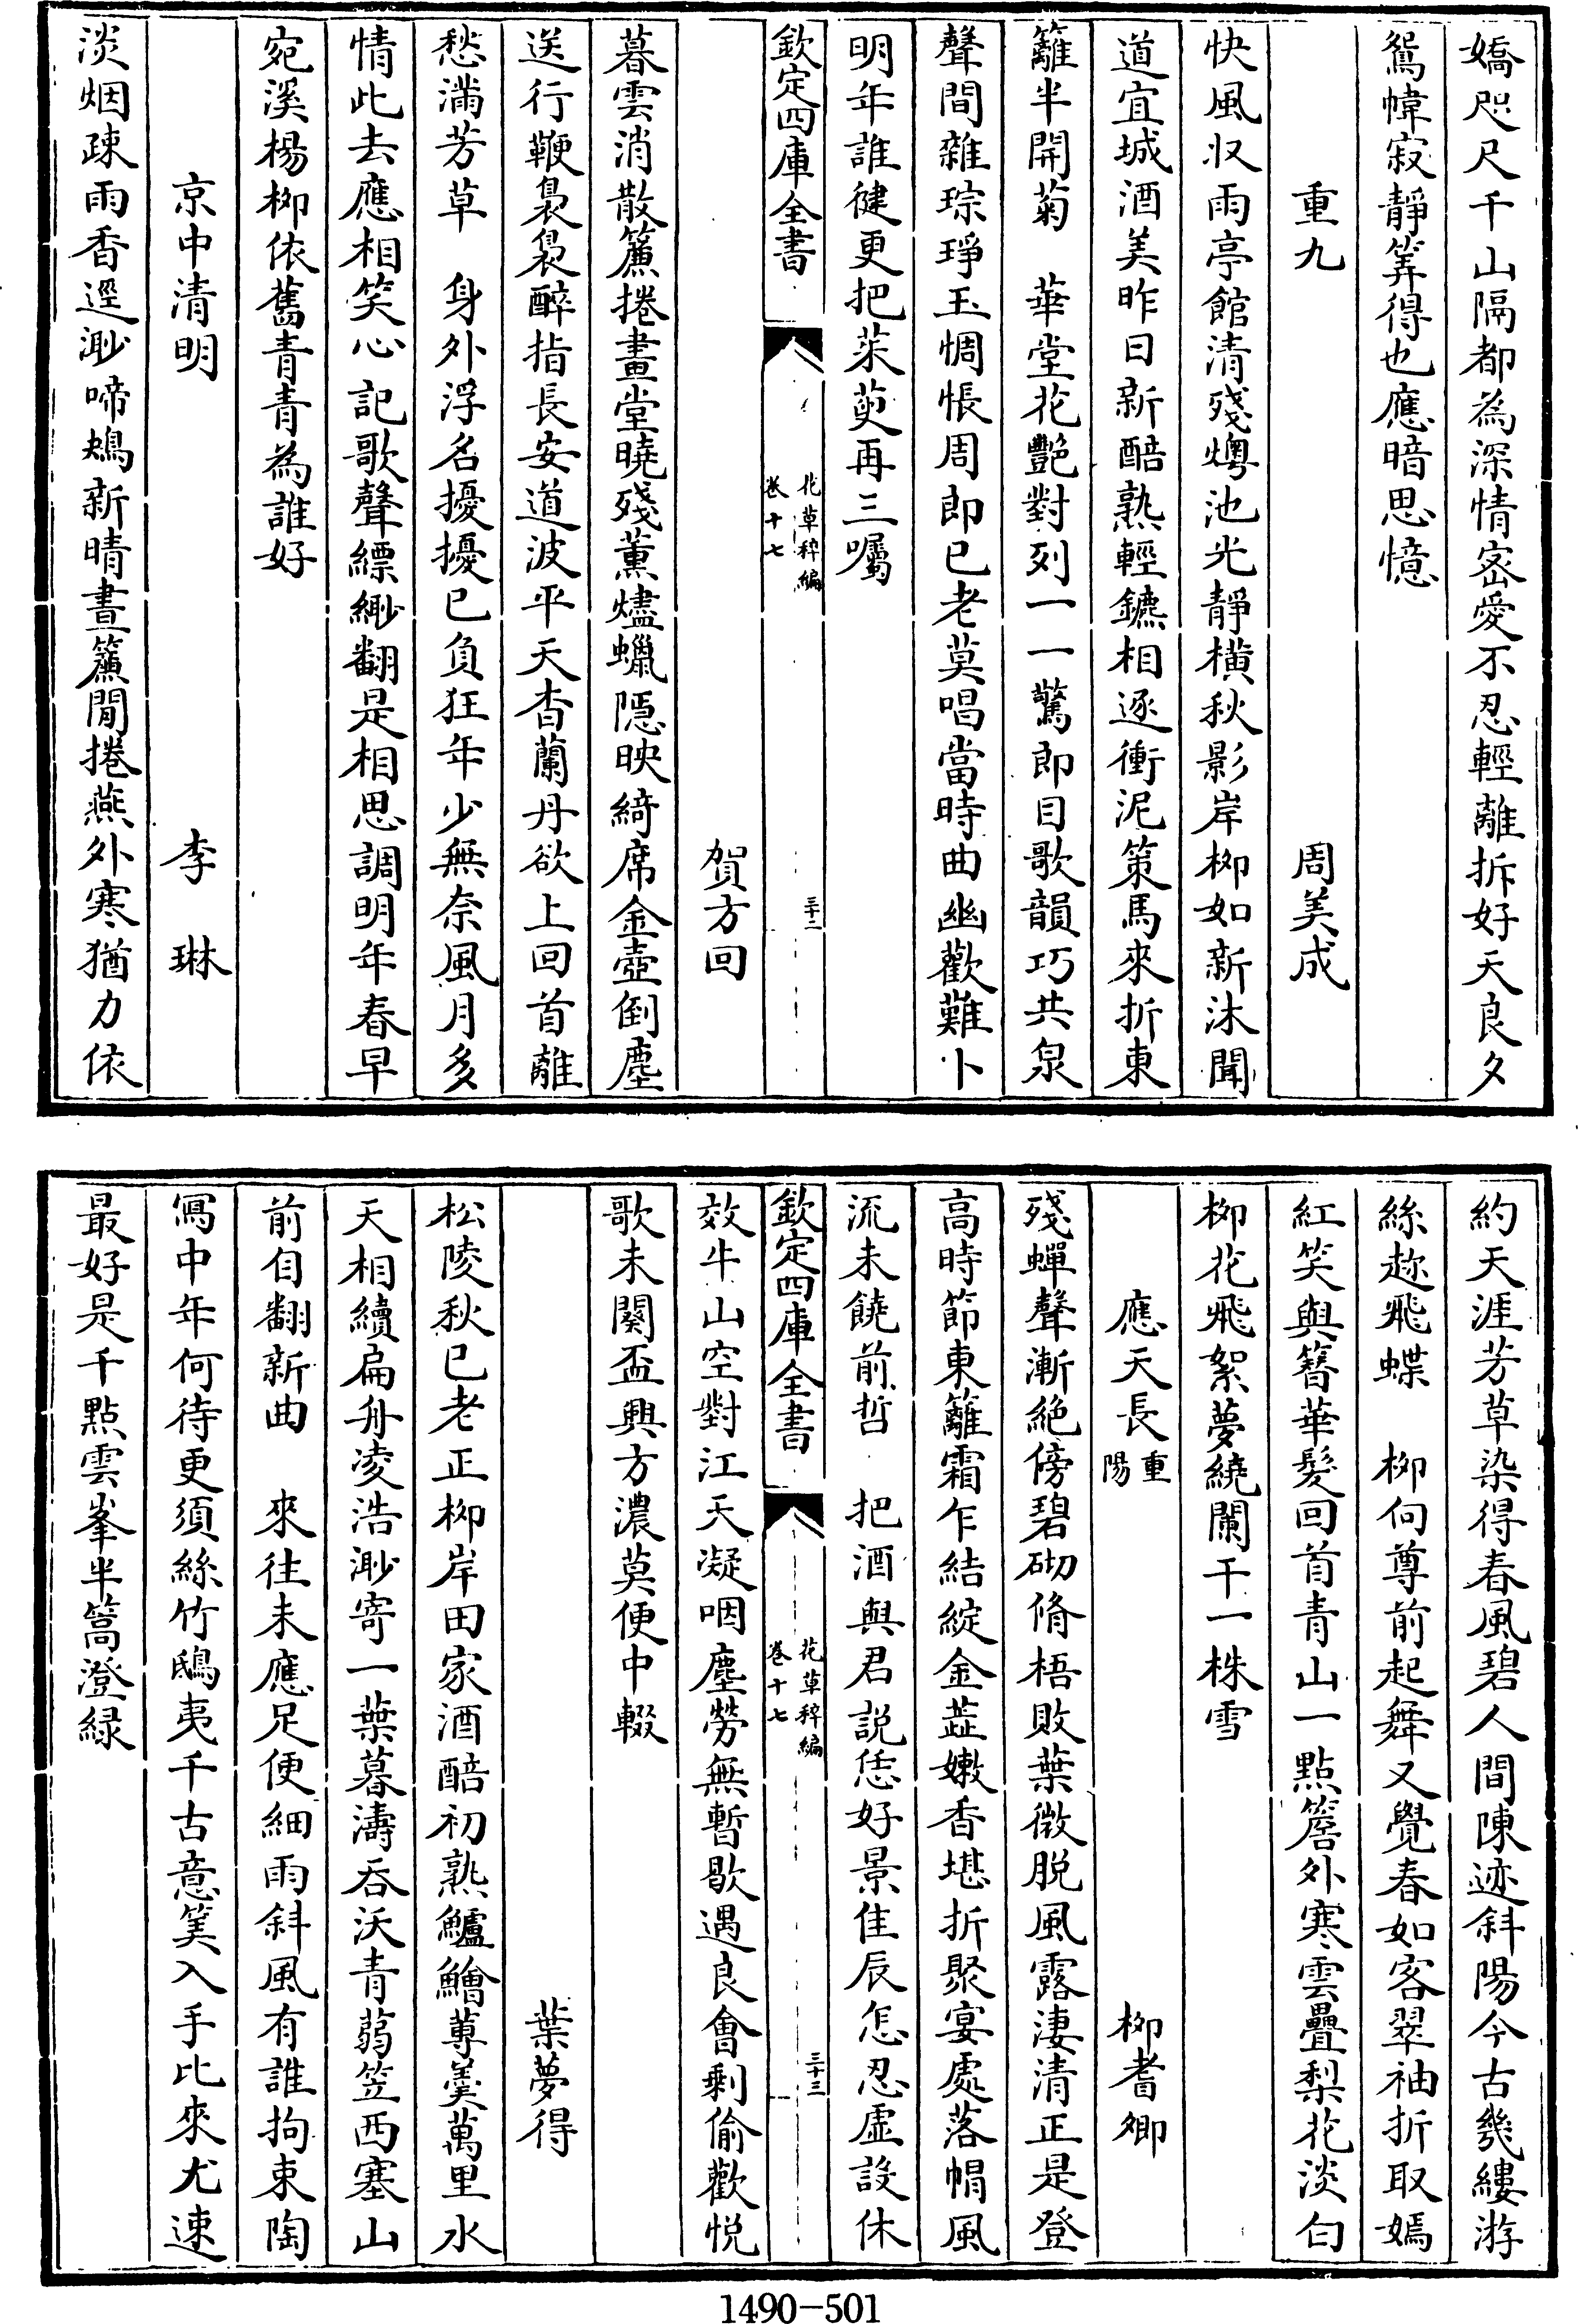 嬌咫尺千山隔都為深情宻愛不忍輕離拆好天良夕
鴛幃寂靜筭得也應暗思憶
重九 周美成
快風収雨亭館清殘燠池光靜橫秋影岸柳如新沐聞
道宜城酒美昨日新醅熟輕鑣相逐衝泥策馬來折東
籬半開菊 華堂花艷對列一一驚郎目歌韻巧共泉
聲間雜琮琤玉惆悵周郎已老莫唱當時曲幽歡難卜
明年誰健更把茱萸再三囑
欽定四庫全書 花草稡編 卷十七 三十二
賀方回
暮雲消散簾捲畫堂曉殘薰燼蠟隱映綺席金壺倒塵
送行鞭裊裊醉指長安道波平天杳蘭舟欲上回首離
愁滿芳草 身外浮名擾擾已負狂年少無奈風月多
情此去應相笑心記歌聲縹緲翻是相思調明年春早
宛溪楊柳依舊青青為誰好
京中清明 李琳
淡烟疎雨香逕渺啼鴂新晴晝簾閒捲燕外寒猶力依
約天涯芳草染得春風碧人間陳迹斜陽今古幾縷游
絲趂飛蝶 柳向尊前起舞又覺春如客翠袖折取嫣
紅笑與簪華髮回首青山一點簷外寒雲疊梨花淡白
柳花飛絮夢繞闌干一株雪
應天長 重陽 柳耆卿
殘蟬聲漸絶傍碧砌脩梧敗葉微脱風露淒清正是登
高時節東籬霜乍結綻金蘂嫩香堪折聚宴處落帽風
流未饒前哲 把酒與君説恁好景佳辰怎忍虛設休
欽定四庫全書 花草稡編 卷十七 三十三
效牛山空對江天凝咽塵勞無暫歇遇良會剩偷歡悅
歌未闋盃興方濃莫便中輟
葉夢得
松陵秋已老正柳岸田家酒醅初熟鱸鱠蓴羹萬里水
天相續扁舟凌浩渺寄一葉暮濤吞沃青蒻笠西塞山
前自翻新曲 來往未應足便細雨斜風有誰拘束陶
寫中年何待更須絲竹鴟夷千古意筭入手比來尤速
最好是千點雲峯半篙澄緑
1490-501